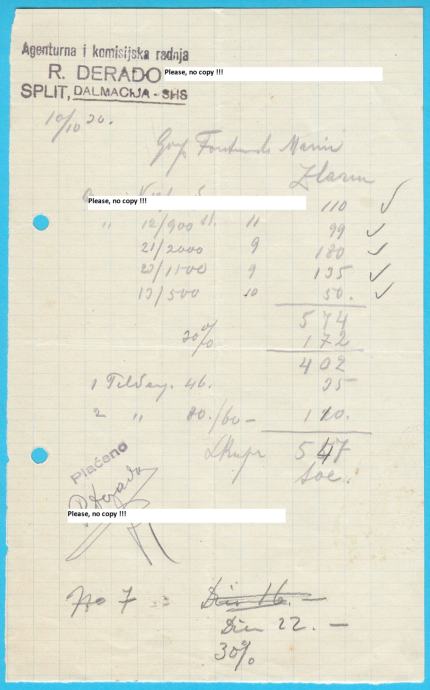 Agenturna i komisijska radnja
R. DERADO Please, no copy !!!
SPLIT, DALMACIJA - SHS
10/10 20.
Zlarin
Please, no copy !!! 110
" 12/900 11 99
21/2000 9 180
1500 9 135
13/500 10 50.
574
30% 172
402
1 46. 25
2 " 80./60- 120.
547
Plaćeno
Please, no copy !!!
No 7 = Din 16. -
Din 22. -
30%